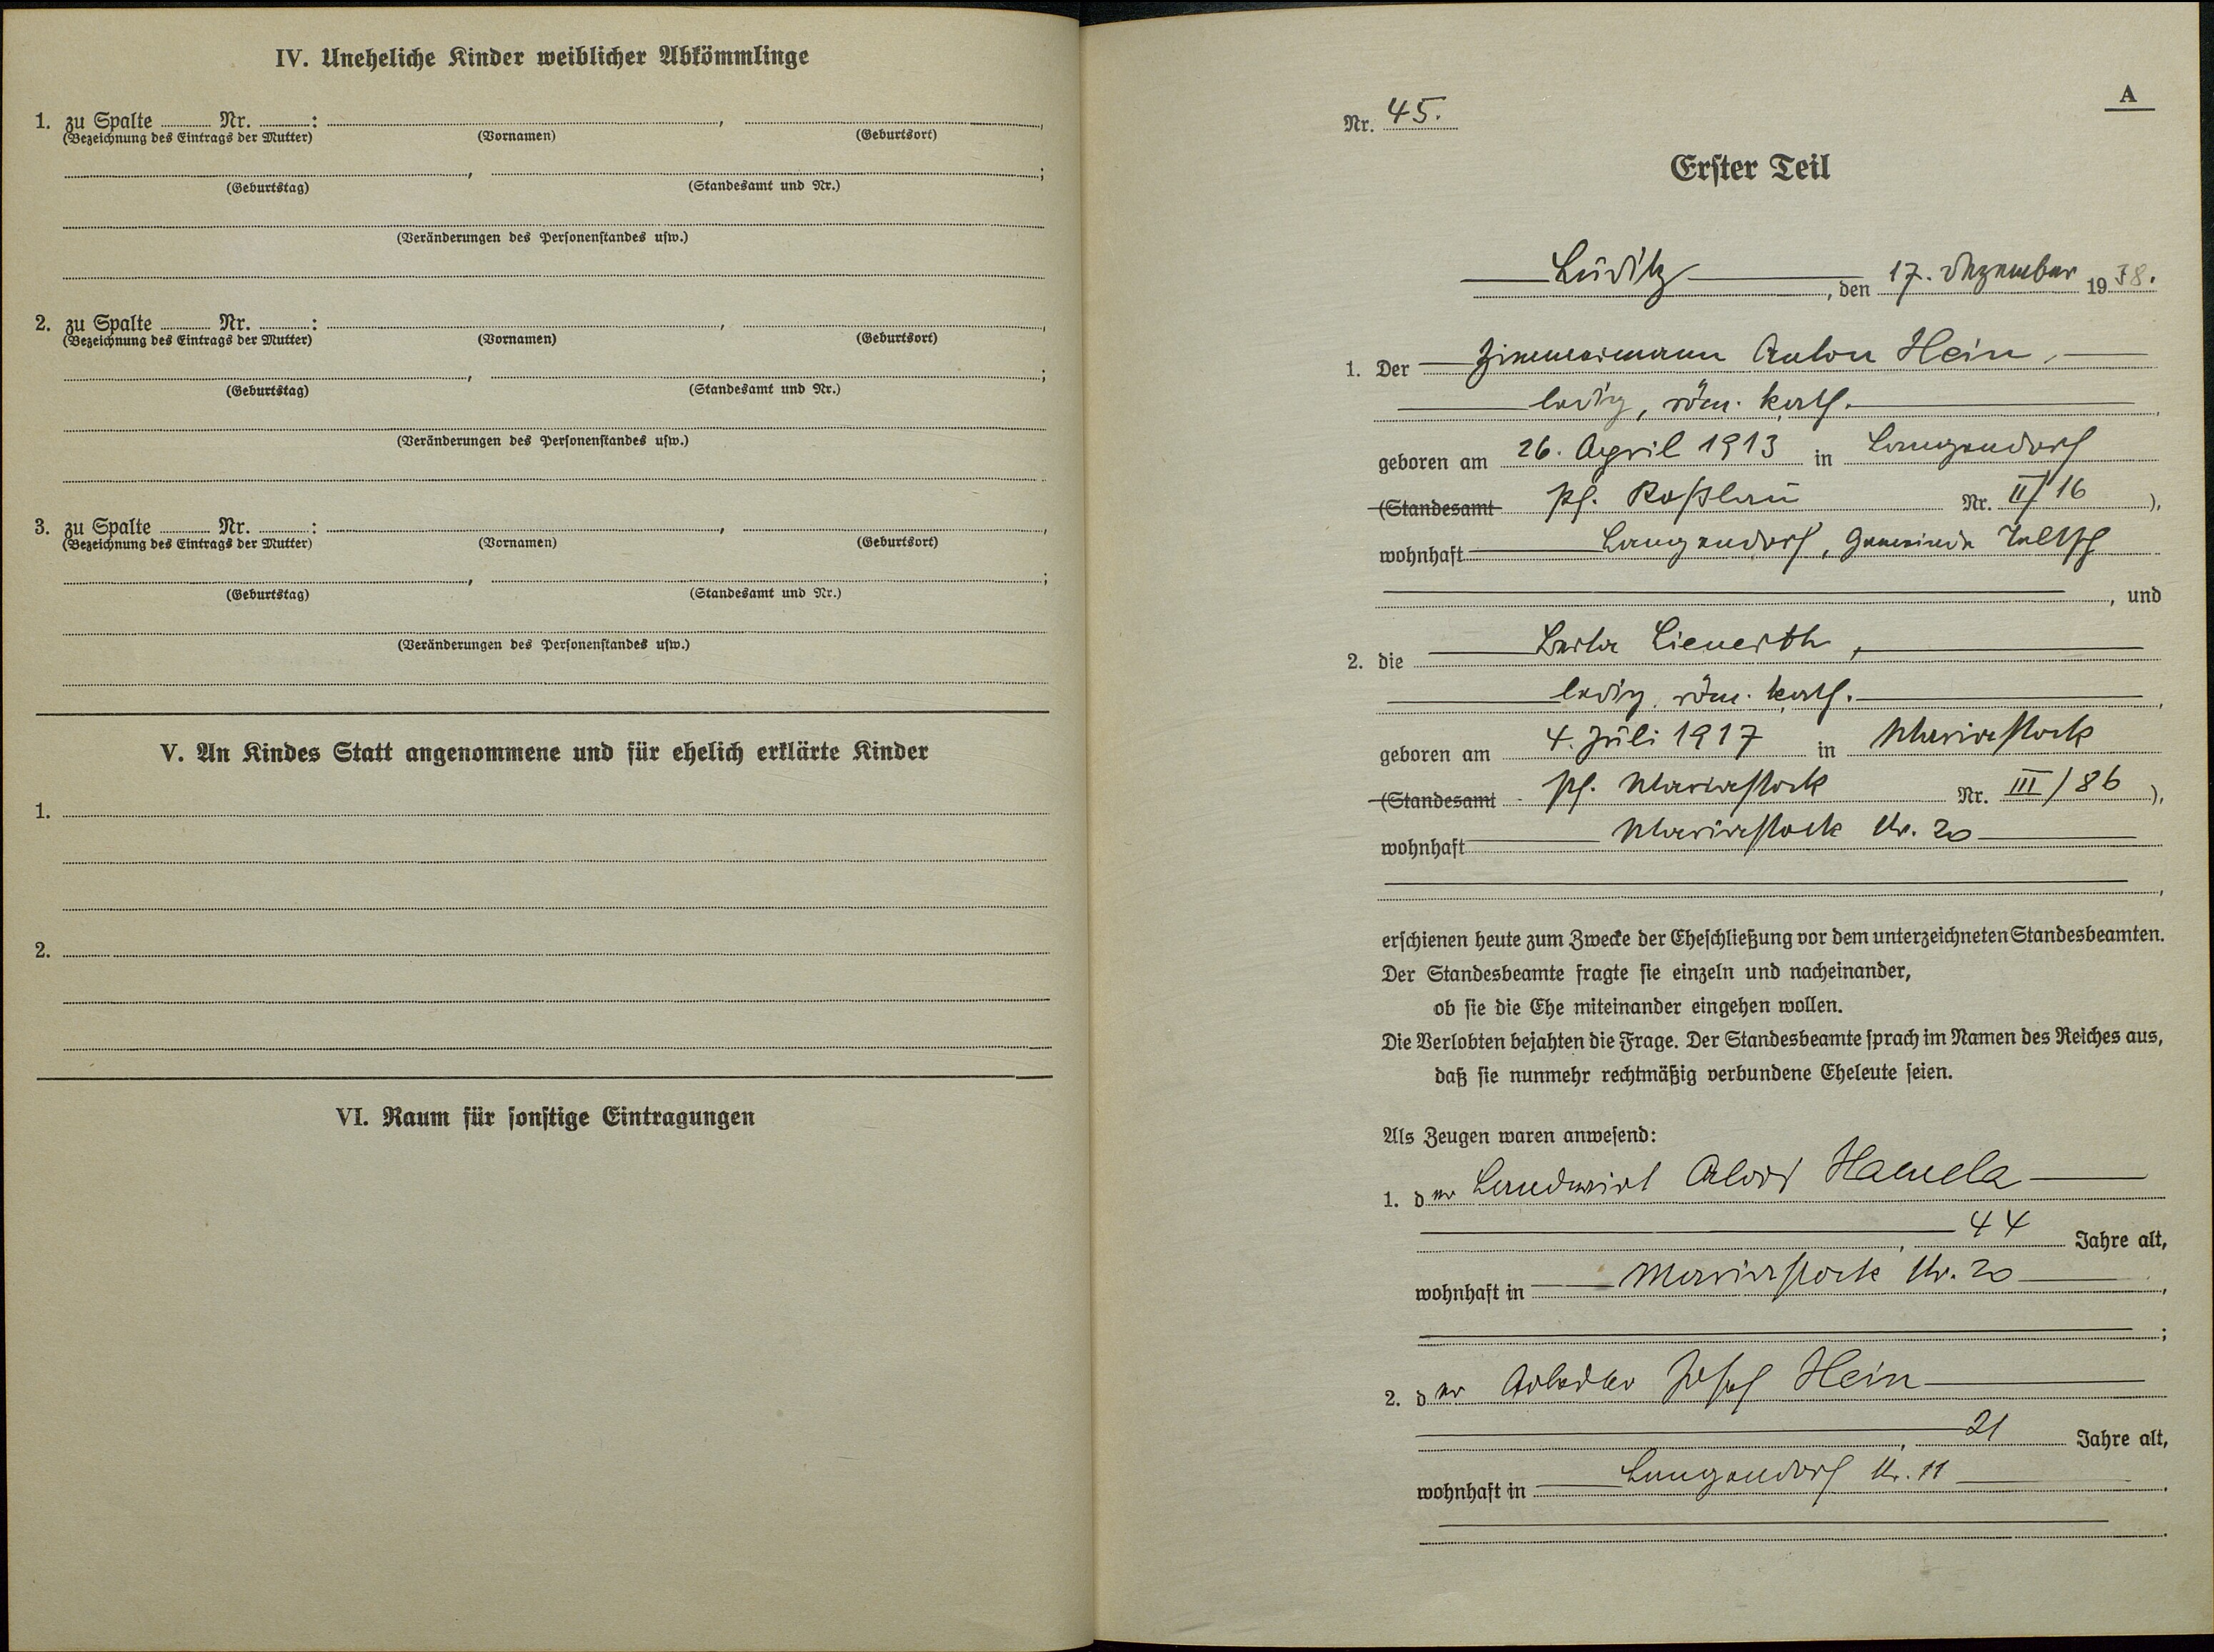 IV. Uneheliche Kinder weiblicher Abkömmlinge
1. zu Spalte ........ Nr. ........: ........, ........,
(Bezeichnung des Eintrags der Mutter) (Vornamen) (Geburtsort)
........, ........;
(Geburtstag) (Standesamt und Nr.)
(Veränderungen des Personenstandes usw.)
2. zu Spalte ........ Nr. ........: ........, ........,
(Bezeichnung des Eintrags der Mutter) (Vornamen) (Geburtsort)
........, ........;
(Geburtstag) (Standesamt und Nr.)
(Veränderungen des Personenstandes usw.)
3. zu Spalte ........ Nr. ........: ........, ........,
(Bezeichnung des Eintrags der Mutter) (Vornamen) (Geburtsort)
........, ........;
(Geburtstag) (Standesamt und Nr.)
(Veränderungen des Personenstandes usw.)
V. An Kindes Statt angenommene und für ehelich erklärte Kinder
1.
2.
VI. Raum für sonstige Eintragungen
A
Nr. 45.
Erster Teil
Luditz, den 17. Dezember 1938.
1. Der Zimmermann Anton Hein,
ledig, röm. kath.,
geboren am 26. April 1913 in Langendorf
(Standesamt Pf. Koßlau Nr. II/16),
wohnhaft Langendorf, Gemeinde
, und
2. die Berta Lienerth,
ledig, röm. kath.,
geboren am 4. Juli 1917 in Mariastock
(Standesamt Pf. Mariastock Nr. III/86),
wohnhaft Mariastock Nr. 20
,
erschienen heute zum Zwecke der Eheschließung vor dem unterzeichneten Standesbeamten.
Der Standesbeamte fragte sie einzeln und nacheinander,
ob sie die Ehe miteinander eingehen wollen.
Die Verlobten bejahten die Frage. Der Standesbeamte sprach im Namen des Reiches aus,
daß sie nunmehr rechtmäßig verbundene Eheleute seien.
Als Zeugen waren anwesend:
1. der Landwirt Alois Hamela
, 44 Jahre alt,
wohnhaft in Mariastock Nr. 20,
;
2. der Arbeiter Josef Hein
, 21 Jahre alt,
wohnhaft in Langendorf Nr. 11.